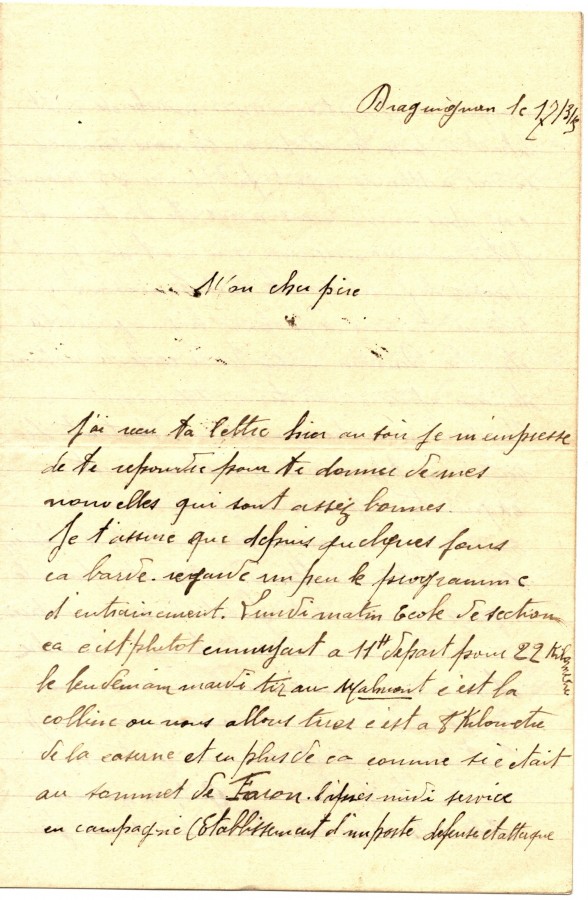 Draguignan le 17/3/15
Mon cher père
J'ai reçu ta lettre hier au soir je m'empresse
de te repondre pour te donner de mes
nouvelles qui sont assez bonnes.
Je t'assure que depuis quelques jours
ca barde. regarde un peu le programme
d'entrainement. Lundi matin Ecole de section
ca c'est plutot ennuyant a 11H depart pour 22 Kilometres
le lendemain mardi tir au Malmont c'est la
colline ou nous allons tirer c'est a 8 Kilometre
de la caserne et en plus de ca comme si c'était
au sommet de Faron. l'après midi service
en campagne (Etablissement d'un poste defense et attaque